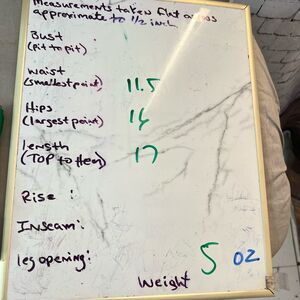 Measurements taken flat across
approximate to 1/2 inch
Bust
(pit to pit)
Waist
(smallest point) 11.5
Hips
(largest point) 14
length
(TOP to Hem) 17
Rise :
Inseam:
leg opening:
Weight 5 oz